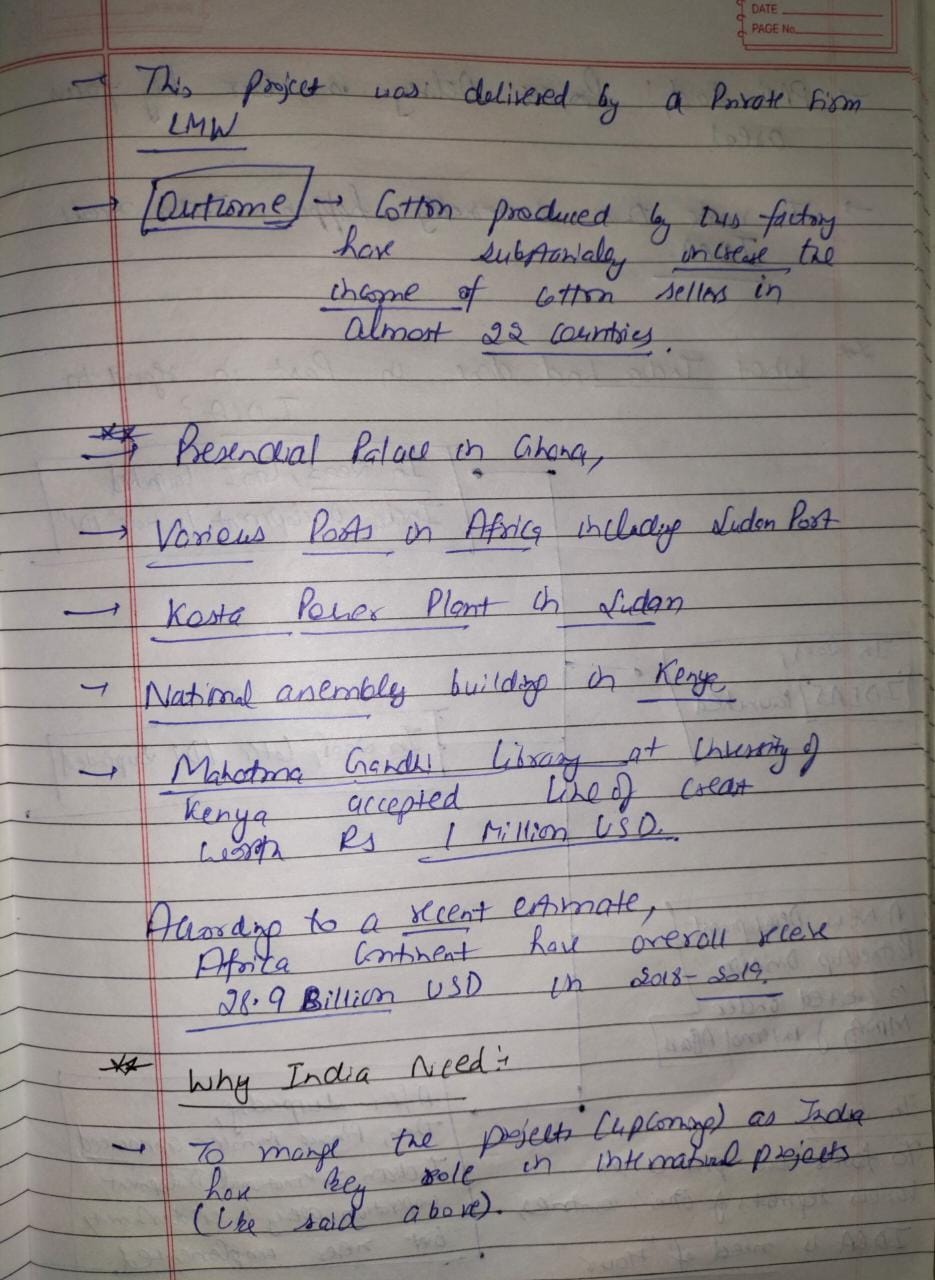 DATE
PAGE No.
→ This project was delivered by a Private firm
LMW
→ Outcome → Cotton produced by this factory
have substantially increase the
income of cotton sellers in
almost 22 countries.
** → Presendial Palace in Ghana,
→ Various Ports in Africa including Sudan Port
→ Kosta Power Plant in Sudan
→ National assembly building in Kenya
→ Mahatma Gandhi Library at University of
Kenya accepted Line of Credit
worth Rs 1 Million USD.
According to a recent estimate,
Africa Continent have overall receve
28.9 Billion USD in 2018-2019.
** Why India Need :-
→ To mange the projects (upcoming) as India
have key role in international projects
(like said above).